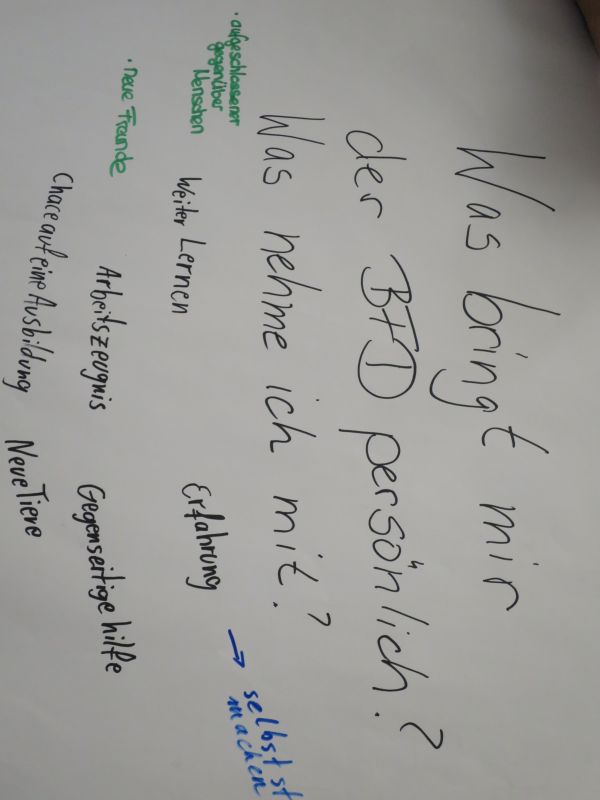 Was bringt mir
der BFD persönlich?
Was nehme ich mit?
• aufgeschlossener
gegenüber
Menschen
Weiter Lernen
Erfahrung
→ selbst st
machen
• neue Freunde
Arbeitszeugnis
Gegenseitige hilfe
Chace auf eine Ausbildung
Neue Tiere